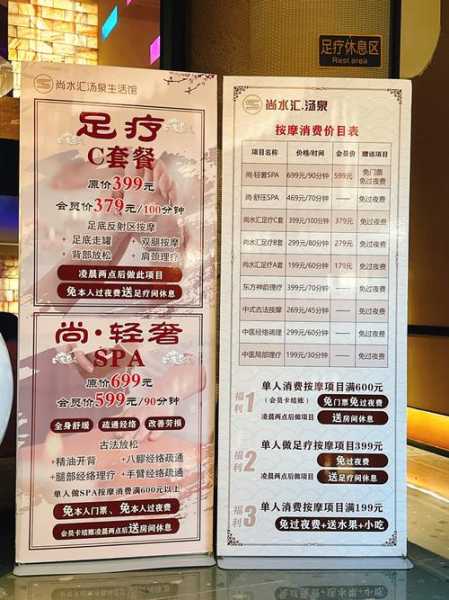 足疗休息区
Rest area
尚水汇汤泉生活馆
足疗
C套餐
原价399元
会员价379元/100分钟
足底反射区按摩
+ 足底走罐 + 双腿按摩
+ 背部放松 + 肩颈理疗
凌晨两点后做此项目
免本人过夜费送足疗间休息
尚·轻奢
SPA
原价699元
会员价599元/90分钟
全身舒缓 疏通经络 改善劳损
古法放松
+精油开背 +八髎经络疏通
+腿部经络理疗 +手臂经络疏通
单人做SPA按摩消费满600元以上
免本人门票、免本人过夜费
会员卡结账凌晨两点后送房间休息
尚水汇.汤泉
按摩消费价目表
项目名称 价格/时间 会员价 赠送项目
尚·轻奢SPA 699元/90分钟 599元 免门票 免过夜费
尚·舒压SPA 469元/70分钟 — 免过夜费
尚水汇足疗C套 399元/100分钟 379元 免过夜费
尚水汇足疗B套 299元/80分钟 279元 免过夜费
尚水汇足疗A套 199元/60分钟 179元 免过夜费
东方神韵理疗 399元/70分钟 — 免过夜费
中式古法按摩 269元/45分钟 — 免过夜费
中医经络调理 299元/60分钟 — 免过夜费
中医局部理疗 199元/30分钟 — 免过夜费
福利1
单人消费按摩项目满600元
(会员卡结账) 免门票免过夜费
凌晨两点后做项目 送房间休息
福利2
单人做足疗按摩项目399元
免过夜费
凌晨两点后做项目 送足疗间休息
福利3
单人消费按摩项目满199元
免过夜费+送水果+小吃